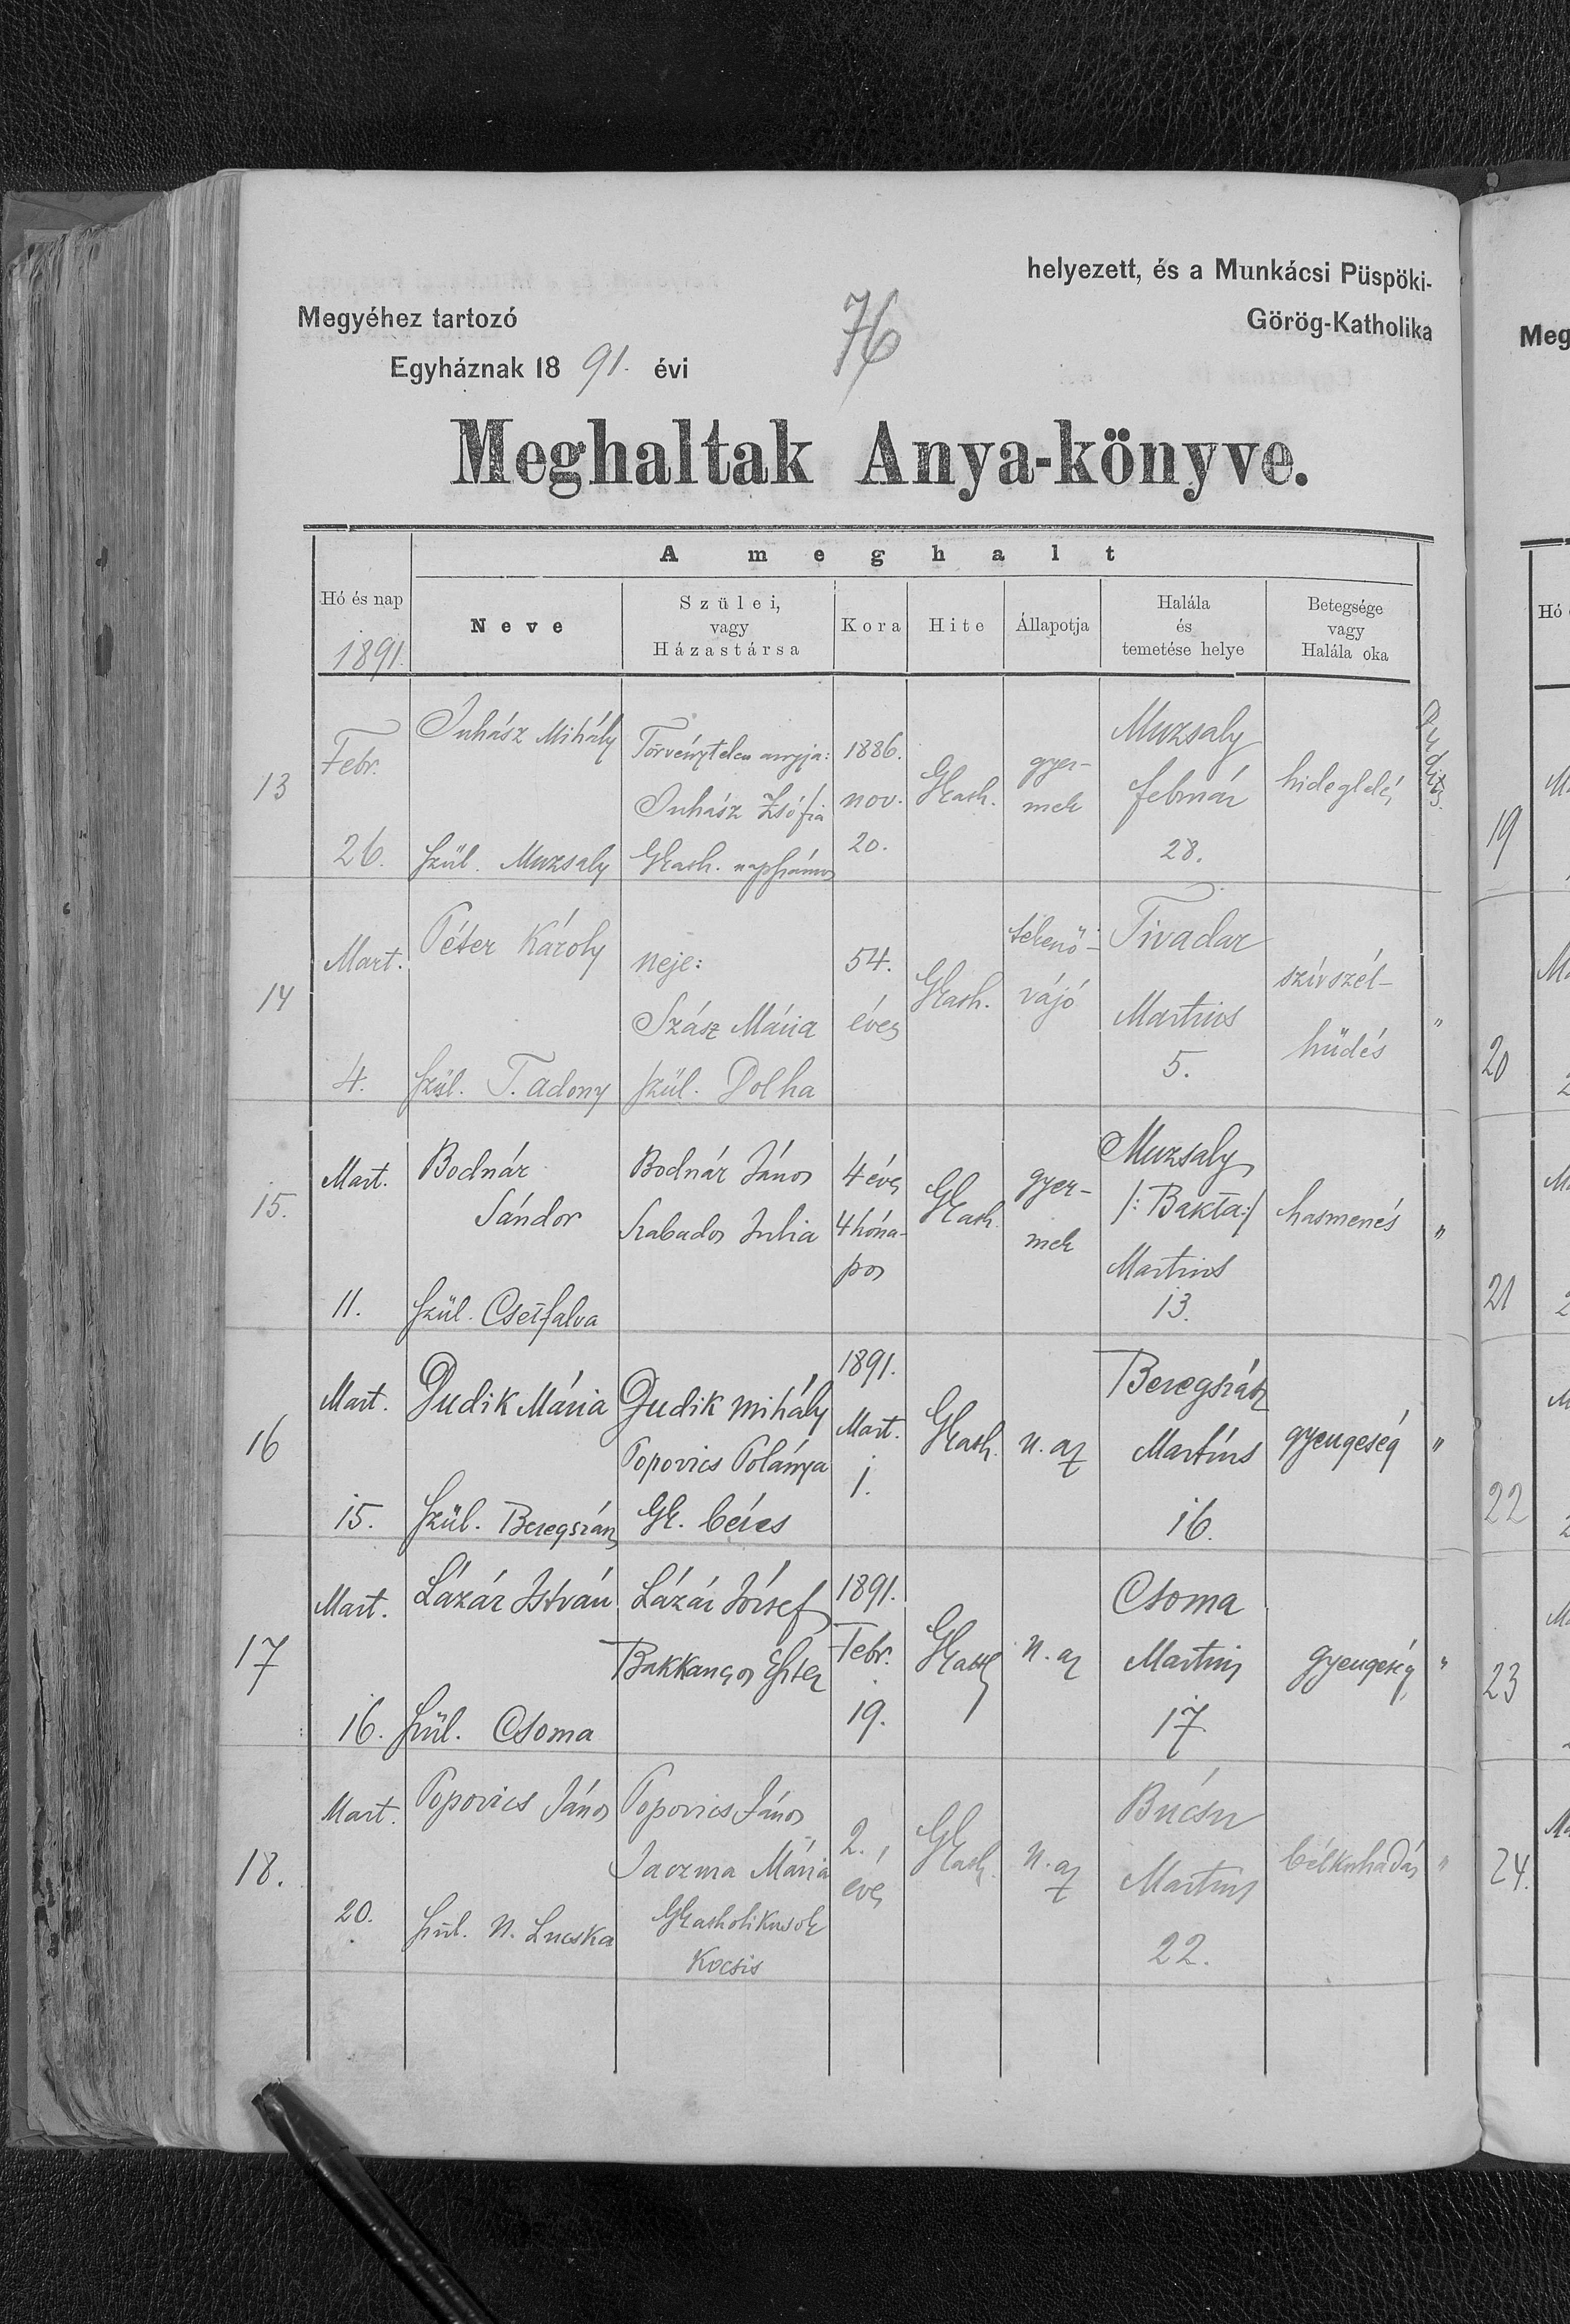 helyezett, és a Munkácsi Püspöki-
Megyéhez tartozó 76 Görög-Katholika
Egyháznak 1891. évi
Meghaltak Anya-könyve.
A meghalt
Hó és nap
1891.
Neve
Szülei,
vagy
Házastársa
Kora
Hite
Állapotja
Halála
és
temetése helye
Betegsége
vagy
Halála oka
13
Febr.
26.
Juhász Mihály
szül. Muzsaly
Törvénytelen anyja:
Juhász Zsófia
Gkath. napszámos
1886.
nov.
20.
Gkath.
gyer-
mek
Muzsaly
február
28.
hideglelés
14
Mart.
4.
Péter Károly
szül. T. adony
neje:
Szász Mária
szül. Dolha
54.
éves
Gkath.
tekenő-
vájó
Tivadar
Martius
5.
szívszél-
hüdés
"
15.
Mart.
11.
Bodnár
Sándor
szül. Csetfalva
Bodnár János
Szabados Julia
4 éves
4 hóna-
pos
Gkath.
gyer-
mek
Muzsaly
/: Bakta :/
Martius
13.
hasmenés
"
16
Mart.
15.
Dudik Mária
szül. Beregszász
Dudik Mihály
Popovics Polánya
Gk. béres
1891.
Mart.
1.
Gkath.
u. az
Beregszász
Martius
16.
gyengeség
"
17
Mart.
16.
Lázár István
szül. Csoma
Lázár József
Eszter
1891.
Febr.
19.
Gkath
u. az
Csoma
Martius
17.
gyengeség
"
18.
Mart.
20.
Popovics János
szül. N. Lucska
Popovics János
Jaczma Mária
Gkatholikusok
Kocsis
2.
éves
Gkath.
u. az
Bucsu
Martius
22.
bélkuhadás
"
Meg
Hó
19
20
21
22
23
24.